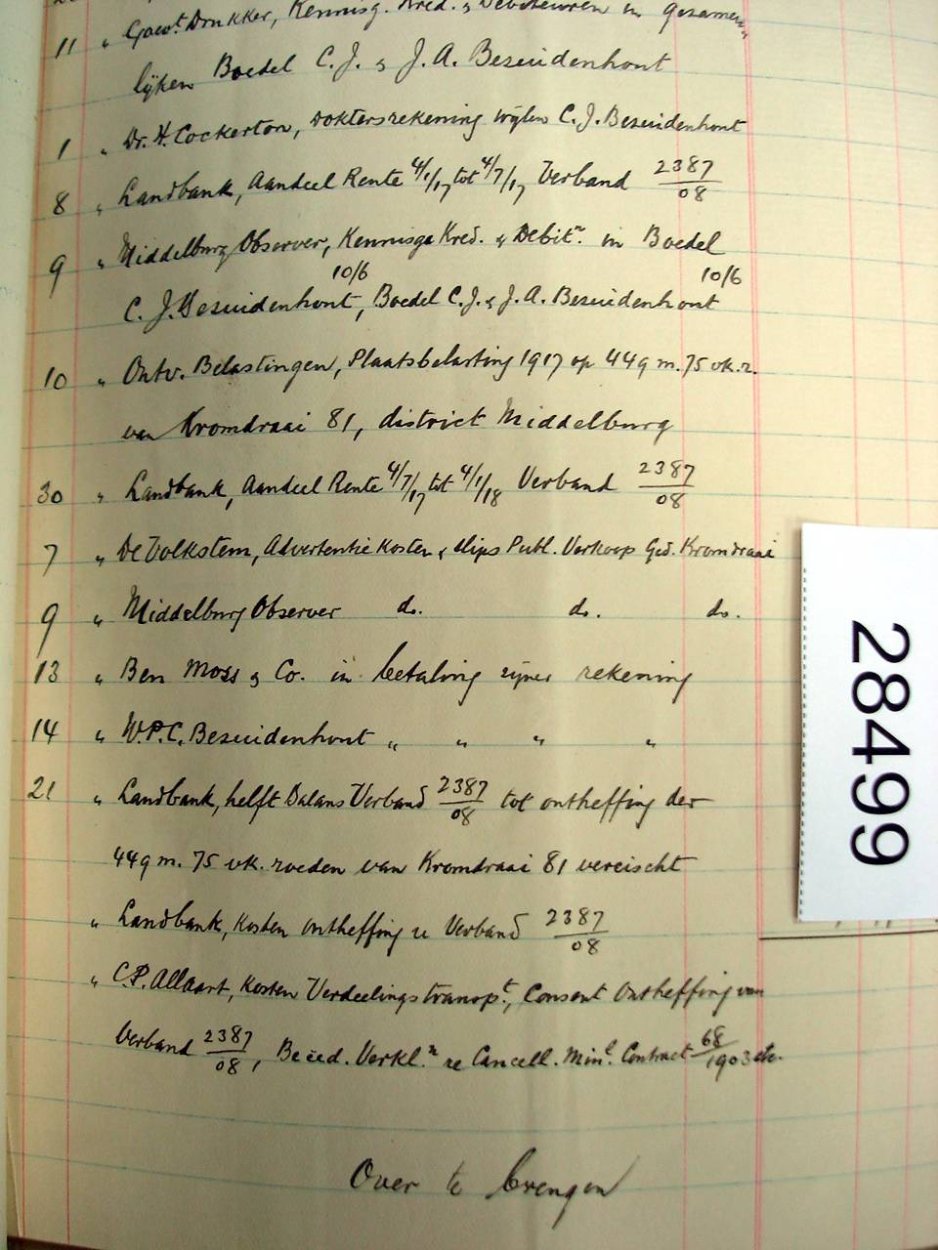 11 " Gouvt. Drukker, Kennisg. Kred. & Debiteuren in gezamen
lijken Boedel C. J. & J. A. Bezuidenhout
1 " Dr. H. Cockerton, Doktersrekening wijlen C. J. Bezuidenhout
8 " Landbank, Aandeel Rente 4/1/17 tot 4/7/17 Verband 2387/08
9 " Middelburg Observer, Kennisga Kred. & Debitn. in Boedel
10/6 10/6
C. J. Bezuidenhout, Boedel C. J. & J. A. Bezuidenhout
10 " Ontv. Belastingen, Plaatsbelasting 1917 op 449 m. 75 vk. r.
van Kromdraai 81, district Middelburg
30 " Landbank, Aandeel Rente 4/7/17 tot 4/1/18 Verband 2387/08
7 " De Volkstem, Advertentie Kosten & Slips Publ. Verkoop Ged. Kromdraai
9 " Middelburg Observer do. do. do.
13 " Ben Moss & Co. in betaling zijner rekening
14 " W. P. C. Bezuidenhout " " " "
21 " Landbank, helft Balans Verband 2387/08 tot ontheffing der
449 m. 75 vk. roeden van Kromdraai 81 vereischt
" Landbank, Kosten ontheffing u Verband 2387/08
" C. P. Allaart, Kosten Verdeelingstranspt., Consent Ontheffing van
Verband 2387/08, Beëed. Verkl.n re Cancell. Minl. Contract 68/1903 etc.
Over te brengen
28499